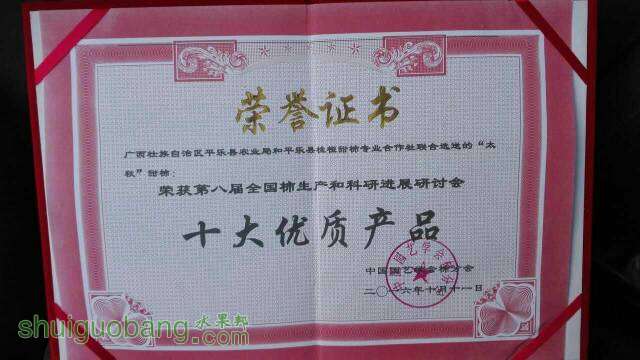 荣誉证书
广西壮族自治区平乐县农业局和平乐县桂恒甜柿专业合作社联合选送的“太
秋”甜柿：
荣获第八届全国柿生产和科研进展研讨会
十大优质产品
中国园艺学会柿分会
二〇一六年十月十一日
shuiguobang.com
水果邦